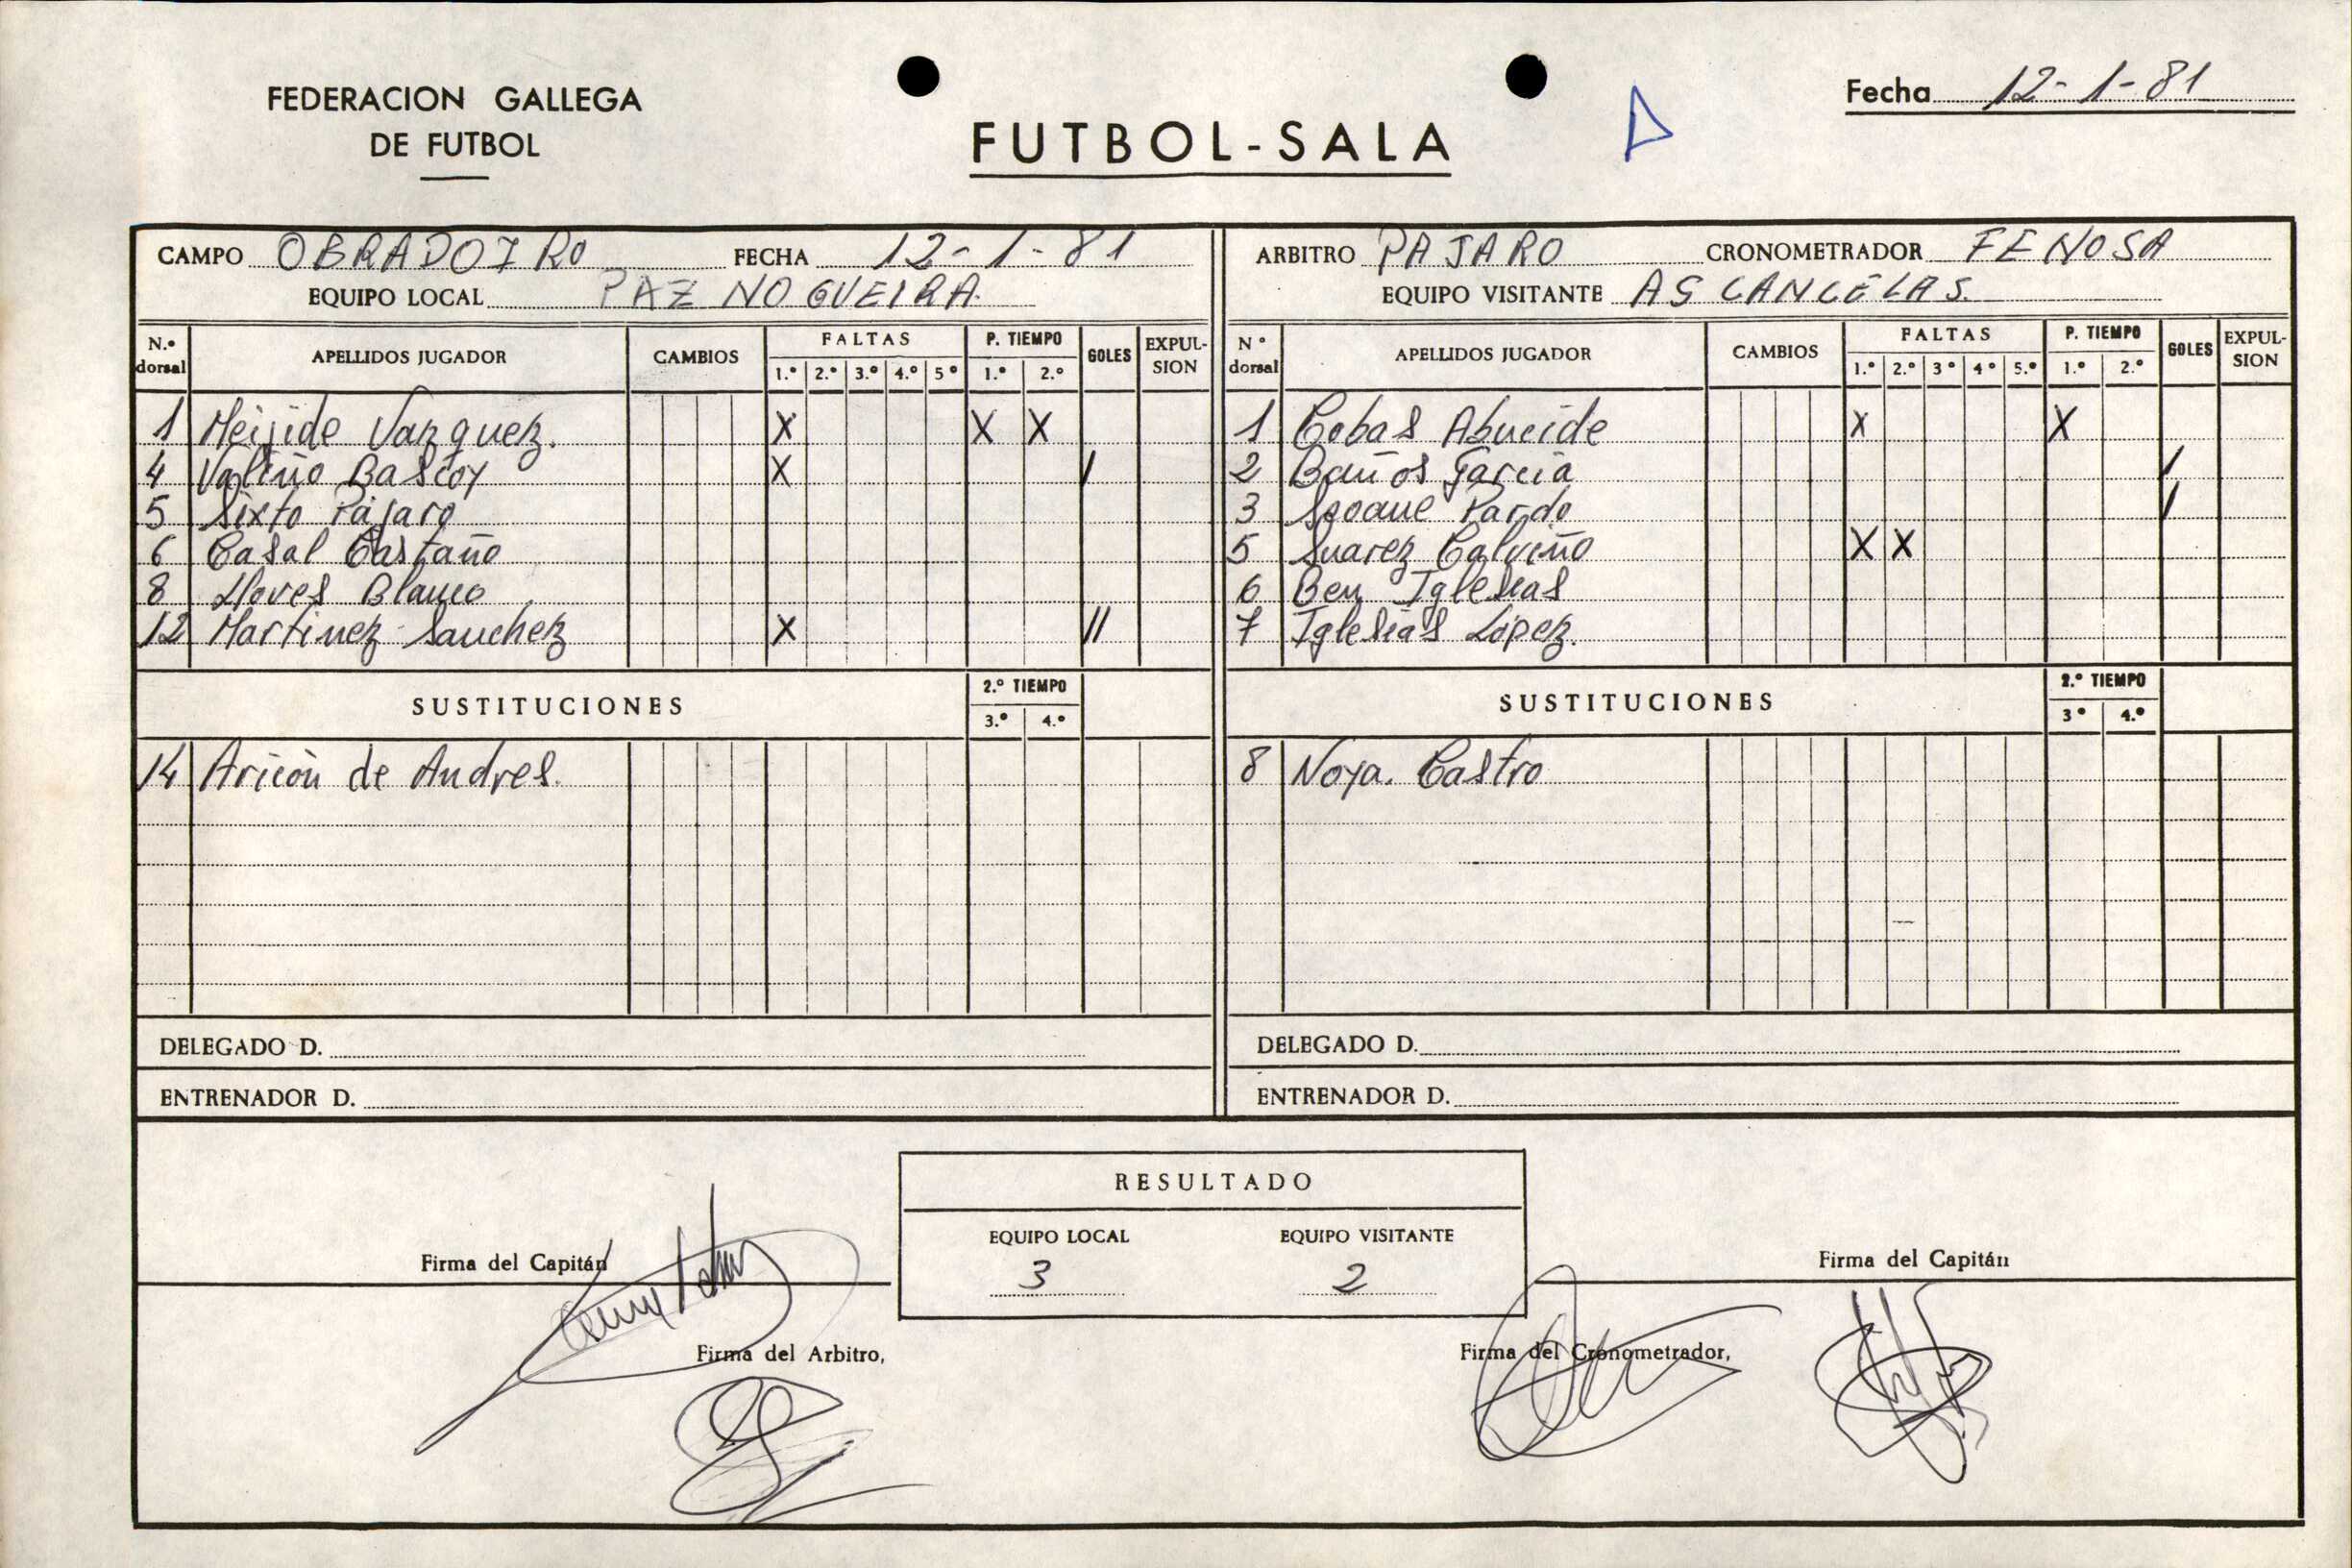 FEDERACION GALLEGA
DE FUTBOL
FUTBOL-SALA
Fecha 12-1-81
CAMPO OBRADOIRO FECHA 12-1-81
EQUIPO LOCAL PAZ NOGUEIRA
ARBITRO PAJARO CRONOMETRADOR FENOSA
EQUIPO VISITANTE AS CANCELAS.
N.º dorsal APELLIDOS JUGADOR CAMBIOS FALTAS P. TIEMPO GOLES EXPUL-SION
1.º 2.º 3.º 4.º 5º 1.º 2.º
1 Meijide Vazquez. X X X
4 Valiño Bascoy X /
5 Sixto Pájaro
6 Casal Castaño
8 Lloves Blanco
12 Martinez Sanchez X //
SUSTITUCIONES 2.º TIEMPO
3.º 4.º
14 Aricón de Andres.
DELEGADO D.
ENTRENADOR D.
Nº dorsal APELLIDOS JUGADOR CAMBIOS FALTAS P. TIEMPO GOLES EXPUL-SION
1.º 2.º 3º 4º 5.º 1.º 2.º
1 Cobas Abueide X X
2 Baños García /
3 Seoane Pardo /
5 Suarez Calviño X X
6 Ben Iglesias
7 Iglesias López.
SUSTITUCIONES 2.º TIEMPO
3º 4.º
8 Noya. Castro
DELEGADO D.
ENTRENADOR D.
RESULTADO
EQUIPO LOCAL EQUIPO VISITANTE
3 2
Firma del Capitán
Firma del Capitán
Firma del Arbitro,
Firma del Cronometrador,